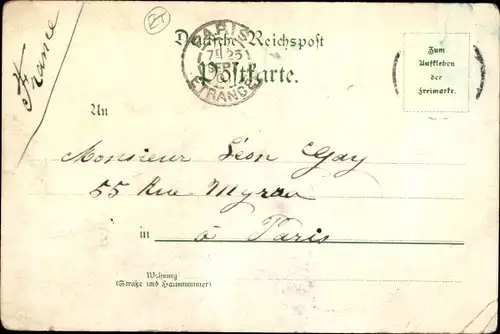 France
27
PARIS
7E 25
SEPT
ETRANGER
Deutsche Reichspost
Postkarte.
Zum
Aufkleben
der
Freimarke.
An
Monsieur Léon Gay
55 Rue Myrau
in à Paris
Wohnung
(Straße und Hausnummer)